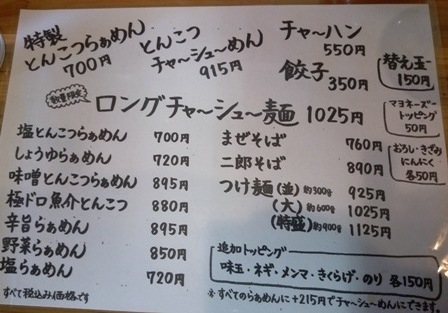 特製
とんこつらぁめん
700円
とんこつ
チャ〜シュ〜めん
915円
チャ〜ハン
550円
餃子 350円
替え玉
150円
数量限定
ロングチャ〜シュ〜麺 1025円
マヨネーズ
トッピング
50円
おろし・きざみ
にんにく
各50円
塩とんこつらぁめん 700円
しょうゆらぁめん 720円
味噌とんこつらぁめん 895円
極ドロ魚介とんこつ 880円
辛旨らぁめん 895円
野菜らぁめん 850円
塩らぁめん 720円
すべて税込み価格です
まぜそば 760円
二郎そば 890円
つけ麺(並)約300g 925円
(大)約600g 1025円
(特盛)約900g 1125円
追加トッピング
味玉・ネギ・メンマ・きくらげ・のり 各150円
※すべてのらぁめんに+215円でチャ〜シュ〜めんにできます。